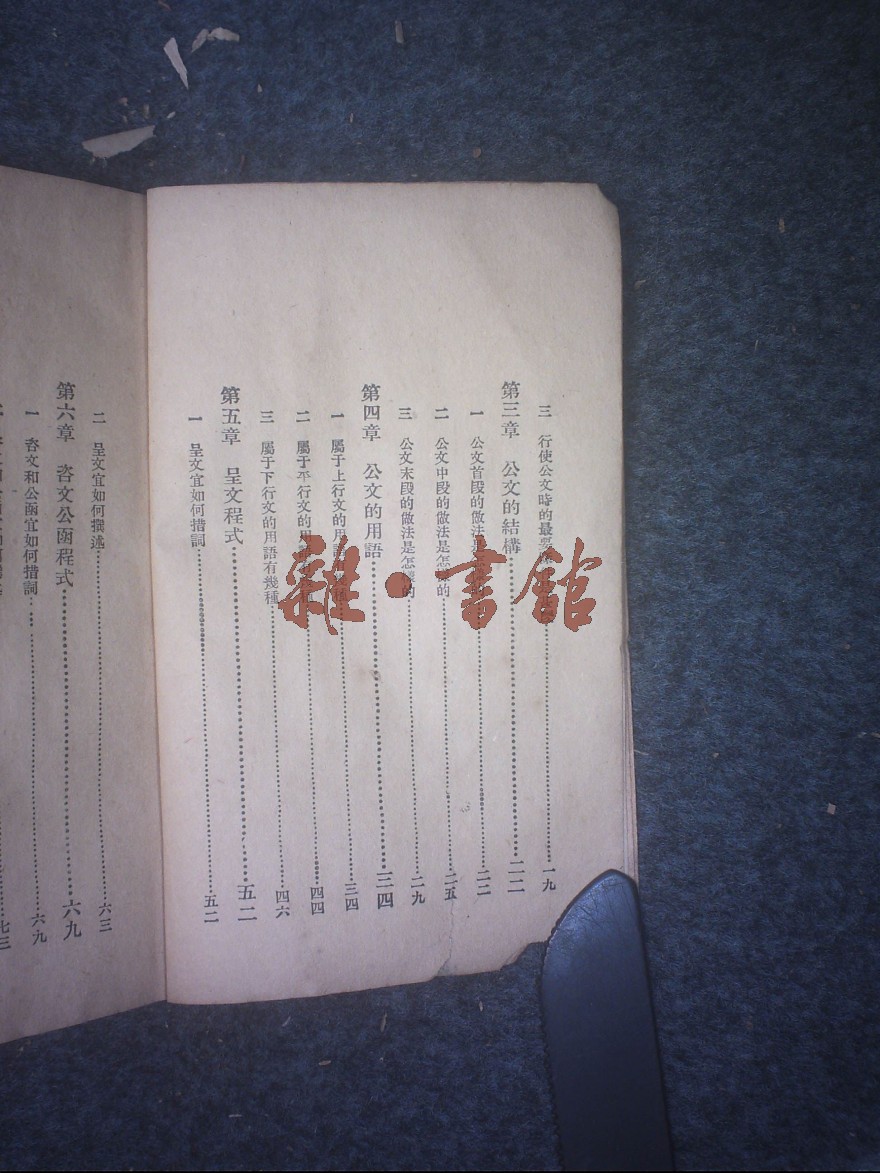 三 行使公文時的最 一九
第三章 公文的結構 二二
一 公文首段的做法是 二二
二 公文中段的做法是怎 的 二五
三 公文末段的做法是怎樣的 二九
第四章 公文的用語 三四
一 屬于上行文的用語 種 三四
二 屬于平行文的用 種 四四
三 屬于下行文的用語有幾種 四六
第五章 呈文程式 五二
一 呈文宜如何措詞 五二
二 呈文宜如何撰述 六三
第六章 咨文公函程式 六九
一 咨文和公函宜如何措詞 六九
七三
雜·書館